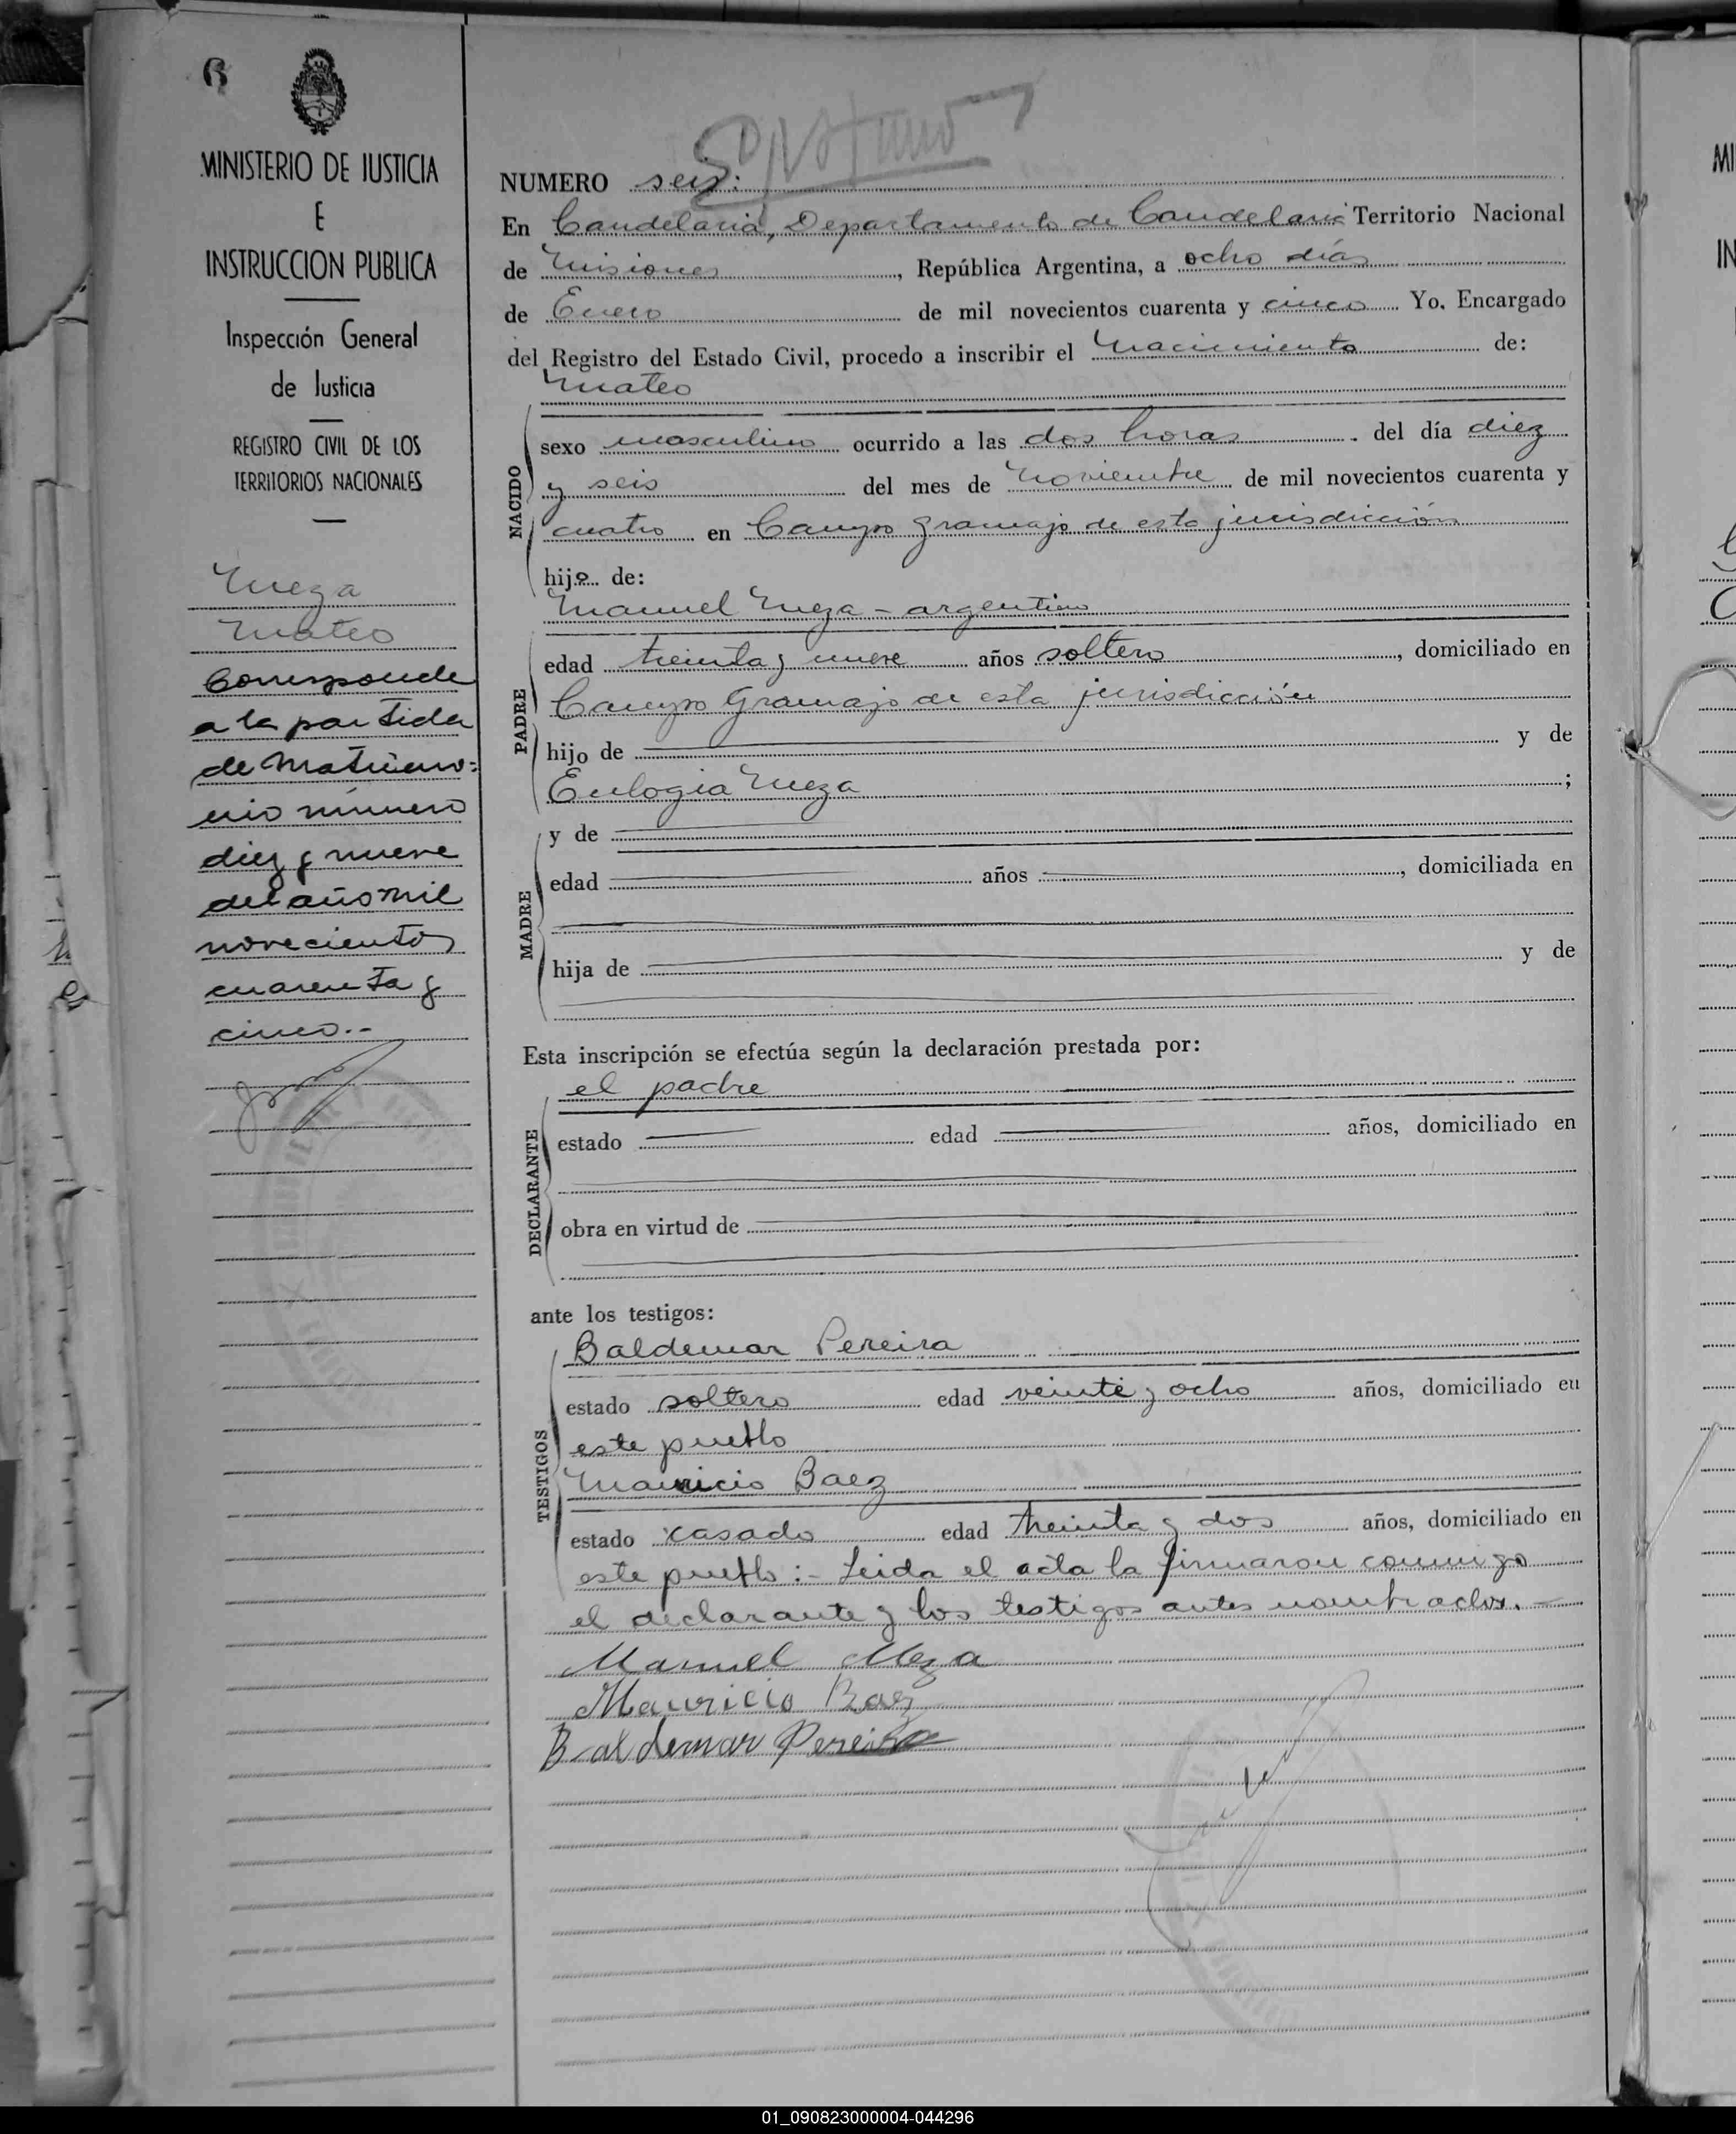 6
MINISTERIO DE JUSTICIA
E
INSTRUCCION PUBLICA
Inspección General
de Justicia
REGISTRO CIVIL DE LOS
TERRITORIOS NACIONALES
Meza
Mateo
Corresponde
a la partida
de Matrimo=
nio número
diez y nueve
del año mil
novecientos
cuarenta y
cinco.-
NUMERO seis:
En Candelaria, Departamento de Candelaria Territorio Nacional
de Misiones, República Argentina, a ocho días
de Enero de mil novecientos cuarenta y cinco Yo, Encargado
del Registro del Estado Civil, procedo a inscribir el Nacimiento de:
Mateo
NACIDO
sexo masculino ocurrido a las dos horas del día diez
y seis del mes de Noviembre de mil novecientos cuarenta y
cuatro en Campo Gramajo de esta jurisdicción
hijo de:
Manuel Meza - argentino
PADRE
edad treinta y nueve años soltero, domiciliado en
Campo Gramajo de esta jurisdicción
hijo de y de
Eulogia Meza ;
MADRE
y de
edad años , domiciliada en
hija de y de
Esta inscripción se efectúa según la declaración prestada por:
el padre
DECLARANTE
estado edad años, domiciliado en
obra en virtud de
ante los testigos:
TESTIGOS
Baldemar Pereira
estado soltero edad veinte y ocho años, domiciliado en
este pueblo
Mauricio Baez
estado casado edad treinta y dos años, domiciliado en
este pueblo:- Leida el acta la firmaron conmigo
el declarante y los testigos antes nombrados.-
Manuel Meza
Mauricio Baez
Baldemar Pereira
01_090823000004-044296